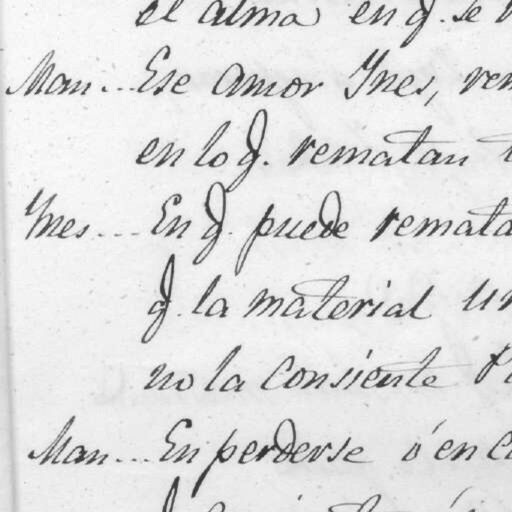 el alma en q. se
Man... Ese amor Ynes,
en lo q. rematan
Ynes... En q. puede
q. la material
no la consiente
Man... En perderse ó en